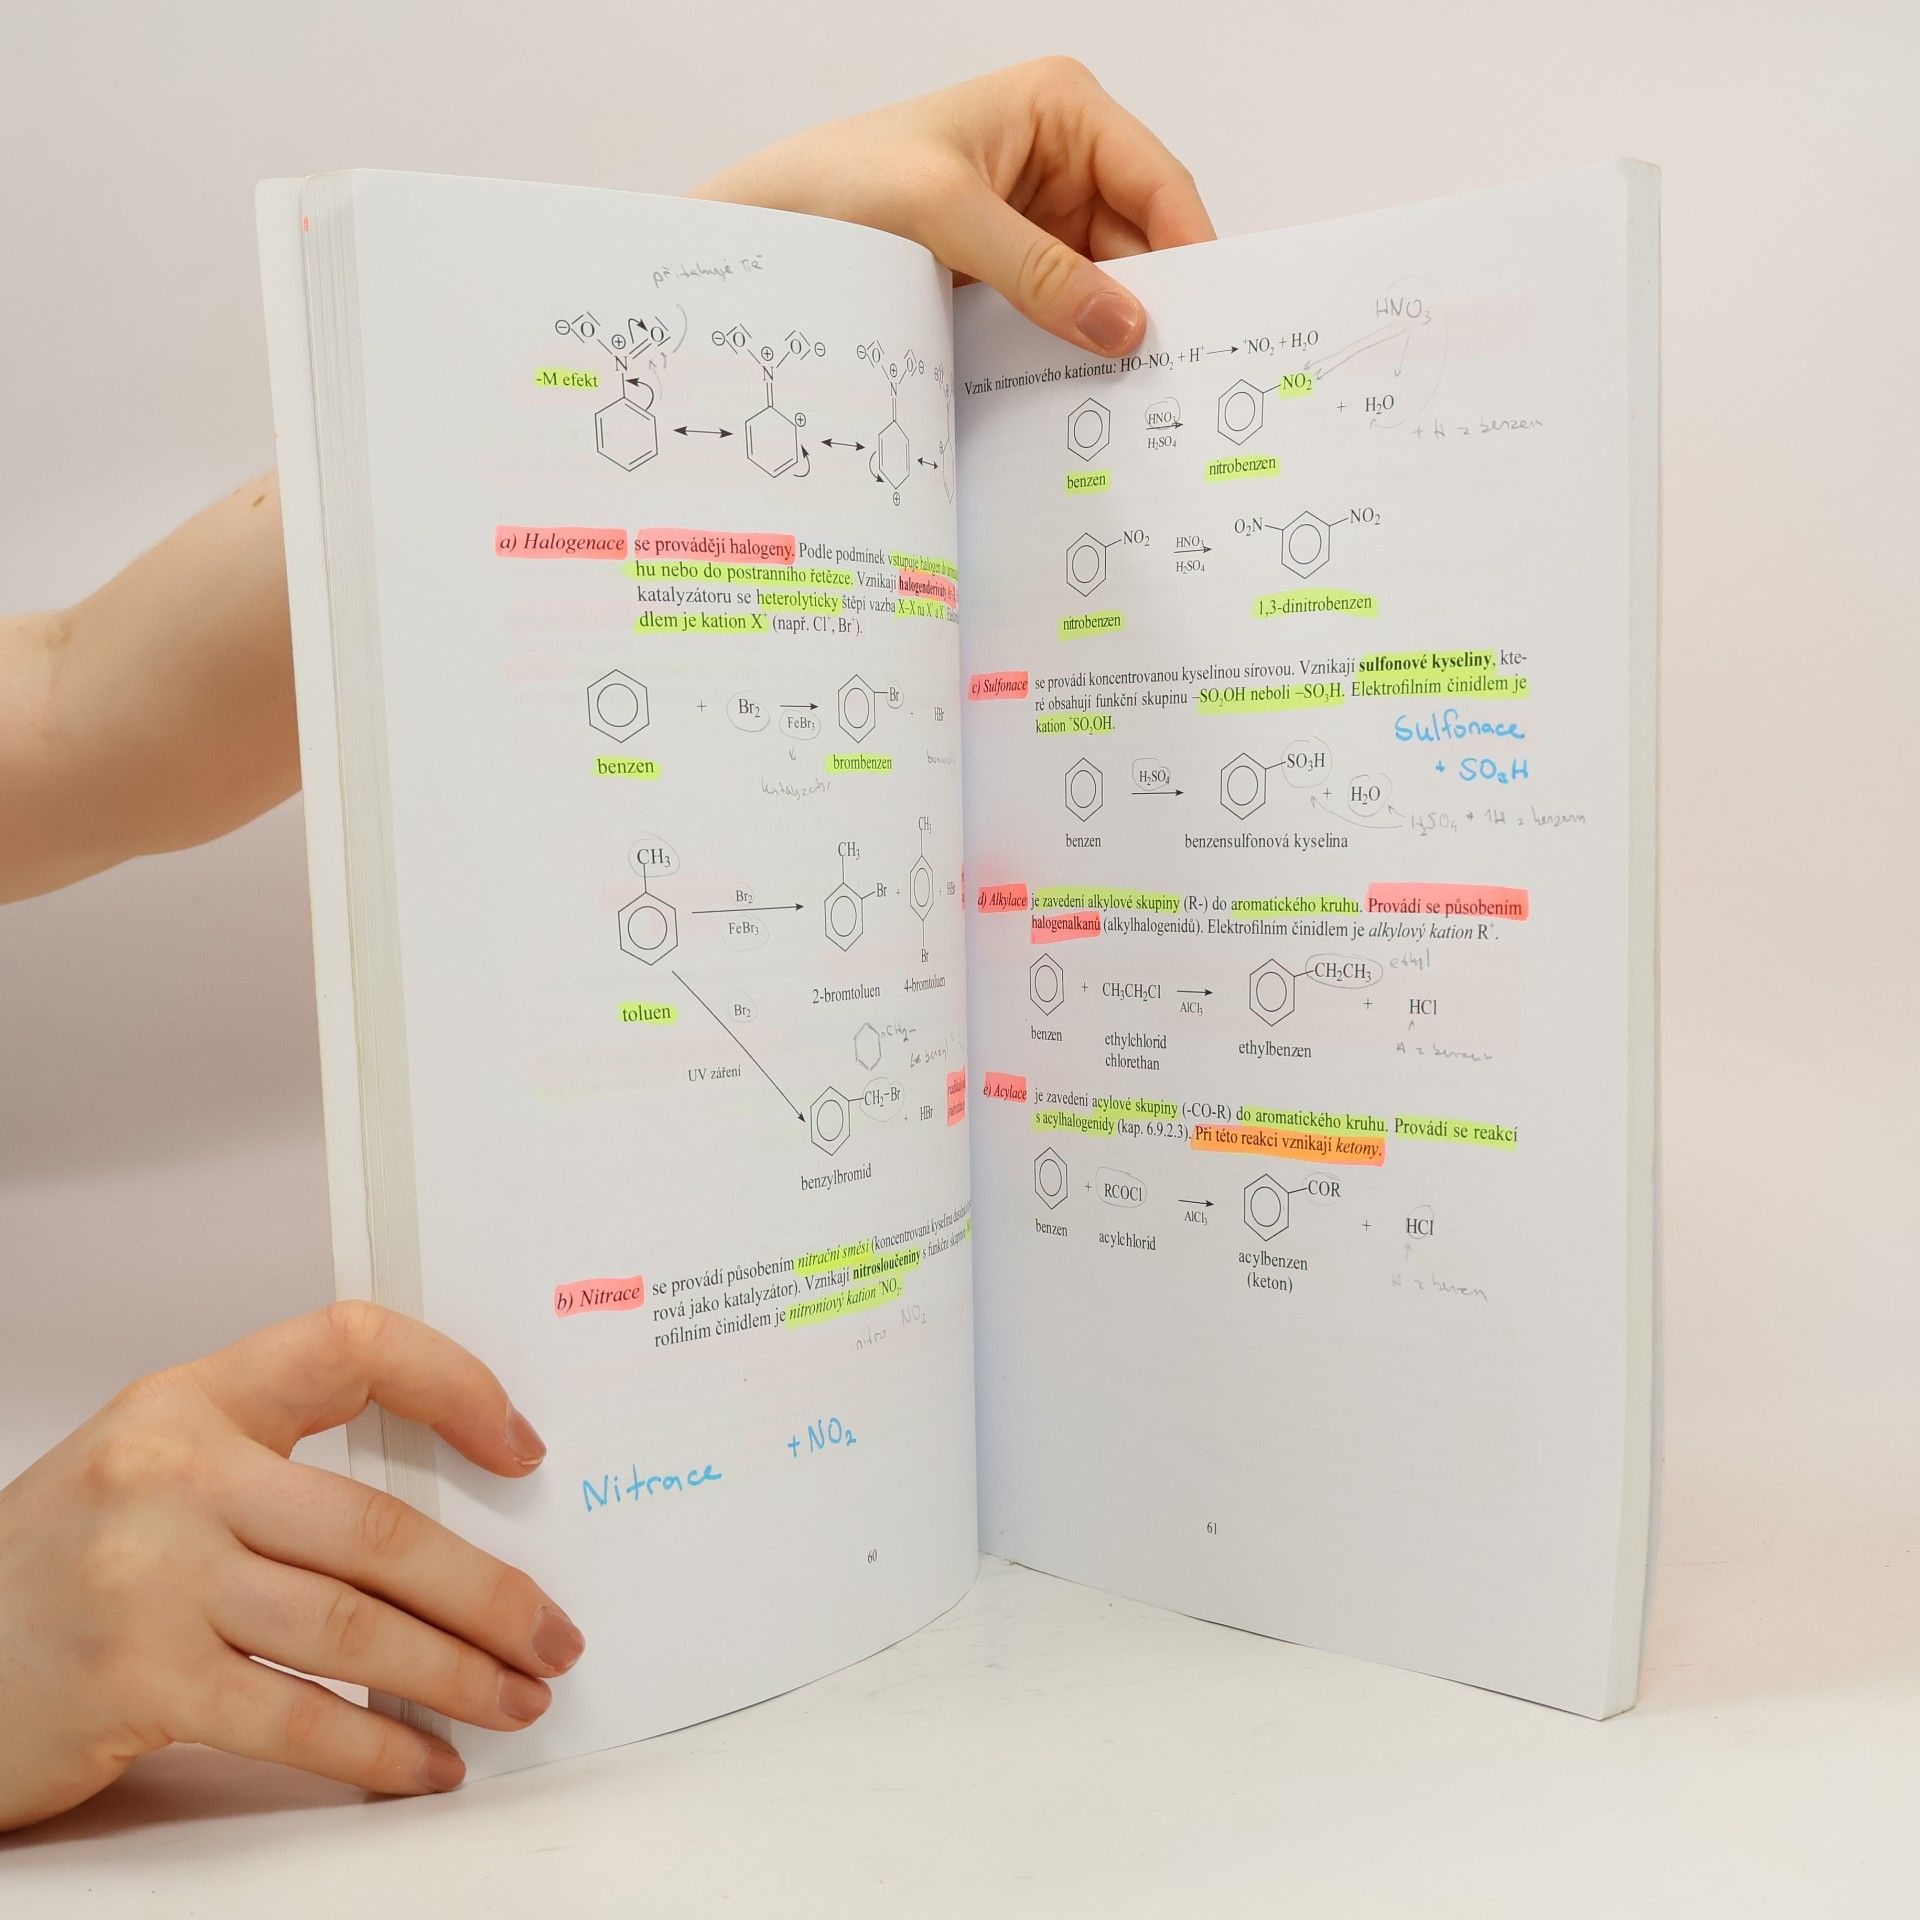 přitahuje πe⁻
⊖ O ⊕ O N
-M efekt
⊖ O ⊕ O ⊖ N ⊕
⊖ O ⊕ O ⊖ N ⊕
a) Halogenace se provádějí halogeny. Podle podmínek vstupuje halogen do
hu nebo do postranního řetězce. Vznikají halogenderiváty
katalyzátoru se heterolyticky štěpí vazba X–X na X⁺ a X⁻
dlem je kation X⁺ (např. Cl⁺, Br⁺).
+ Br₂ FeBr₃ Br + HBr
benzen brombenzen
katalyzátor
CH₃ Br₂ FeBr₃ CH₃ Br + CH₃ Br + HBr
toluen 2-bromtoluen 4-bromtoluen
Br₂
CH₂–
benzyl
UV záření
CH₂–Br + HBr
benzylbromid
b) Nitrace se provádí působením nitrační směsi (koncentrovaná kyselina
rová jako katalyzátor). Vznikají nitrosloučeniny s funkční skupinou
rofilním činidlem je nitroniový kation ⁺NO₂.
nitro NO₂
Nitrace + NO₂
60
HNO₃
Vznik nitroniového kationtu: HO–NO₂ + H⁺ → ⁺NO₂ + H₂O
HNO₃ H₂SO₄ NO₂ + H₂O
+ H z benzen
benzen nitrobenzen
NO₂ HNO₃ H₂SO₄ O₂N NO₂
nitrobenzen 1,3-dinitrobenzen
c) Sulfonace se provádí koncentrovanou kyselinou sírovou. Vznikají sulfonové kyseliny, kte-
ré obsahují funkční skupinu –SO₂OH neboli –SO₃H. Elektrofilním činidlem je
kation ⁺SO₂OH.
Sulfonace
+ SO₃H
H₂SO₄ SO₃H + H₂O
H₂SO₄ + 1H z benzen
benzen benzensulfonová kyselina
d) Alkylace je zavedení alkylové skupiny (R-) do aromatického kruhu. Provádí se působením
halogenalkanů (alkylhalogenidů). Elektrofilním činidlem je alkylový kation R⁺.
+ CH₃CH₂Cl AlCl₃ CH₂CH₃ ethyl + HCl
benzen ethylchlorid ethylbenzen
chlorethan
H z benzen
e) Acylace je zavedení acylové skupiny (-CO-R) do aromatického kruhu. Provádí se reakcí
s acylhalogenidy (kap. 6.9.2.3). Při této reakci vznikají ketony.
+ RCOCl AlCl₃ COR + HCl
benzen acylchlorid acylbenzen
(keton)
H z benzen
61